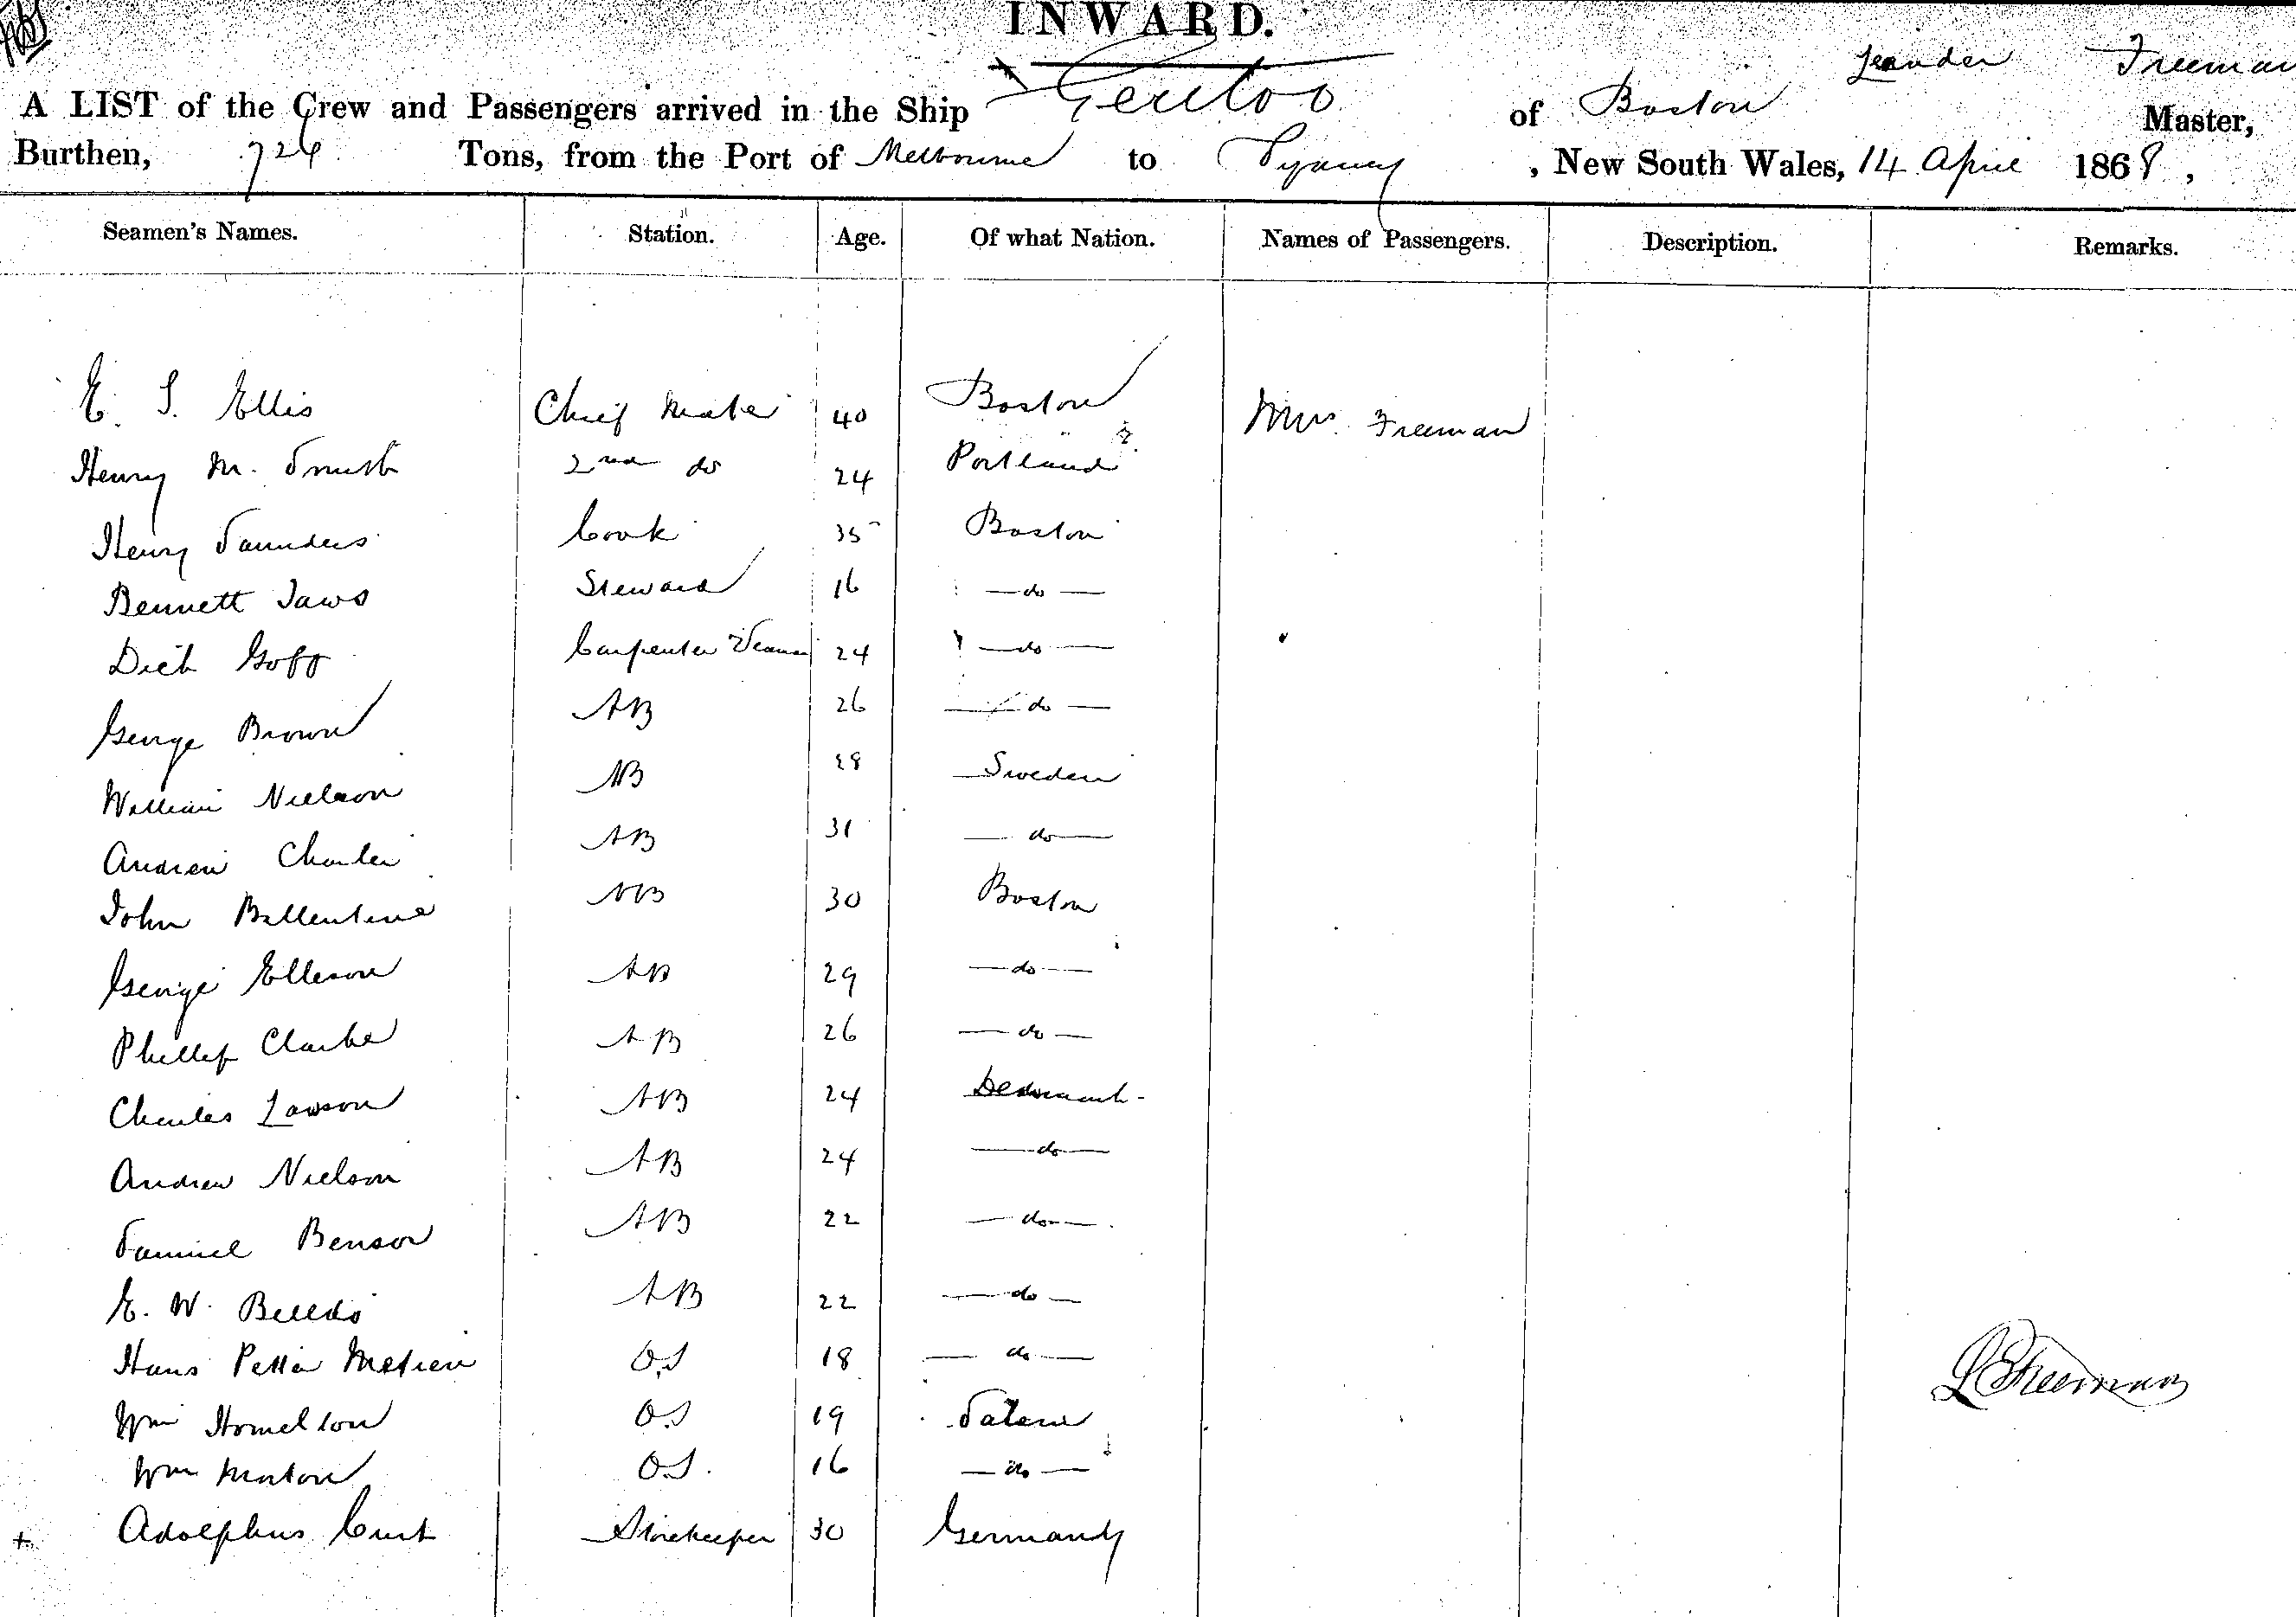 INWARD.
Leander Freeman
A LIST of the Crew and Passengers arrived in the Ship Gentoo of Boston Master,
Burthen, 724 Tons, from the Port of Melbourne to Sydney, New South Wales, 14 April 1868,
Seamen's Names. Station. Age. Of what Nation. Names of Passengers. Description. Remarks.
E. S. Ellis Chief Mate 40 Boston Mrs. Freeman
Henry M. Smith 2nd do 24 Portland
Henry Saunders Cook 35 Boston
Bennett Jaws Steward 16 — do —
Dick Goff Carpenter 24 — do —
George Brown AB 26 — do —
William Nielson AB 28 Sweden
Andrew AB 31 — do —
John Ballentine AB 30 Boston
George Elleson AB 29 — do —
Phillip Clarke AB 26 — do —
Charles Lawson AB 24 Denmark
Andrew Nielson AB 24 — do —
Samuel Benson AB 22 — do —
E. W. AB 22 — do —
Hans Petter O.S 18 — do —
Wm Homelton O.S 19 Salem
Wm O.S. 16 — do —
+ Adolphus Storekeeper 30 Germany
L Freeman